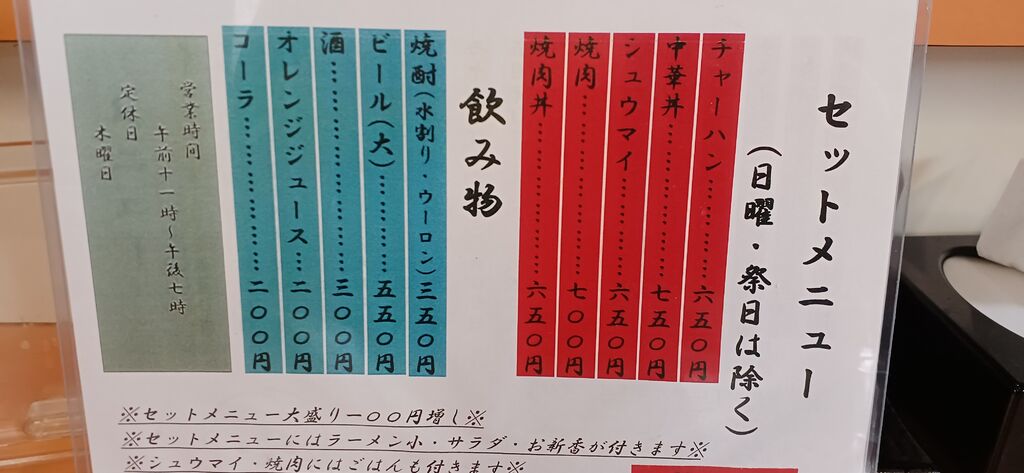 セットメニュー
(日曜・祭日は除く)
チャーハン……………六五〇円
中華丼……………六五〇円
シュウマイ……………六五〇円
焼肉……………七〇〇円
焼肉丼……………六五〇円
飲み物
焼酎(水割り・ウーロン)三五〇円
ビール(大)……………五五〇円
酒……………三〇〇円
オレンジジュース……二〇〇円
コーラ……………二〇〇円
営業時間
午前十一時〜午後七時
定休日
木曜日
※セットメニュー大盛り一〇〇円増し※
※セットメニューにはラーメン小・サラダ・お新香が付きます※
※シュウマイ・焼肉にはごはんも付きます※